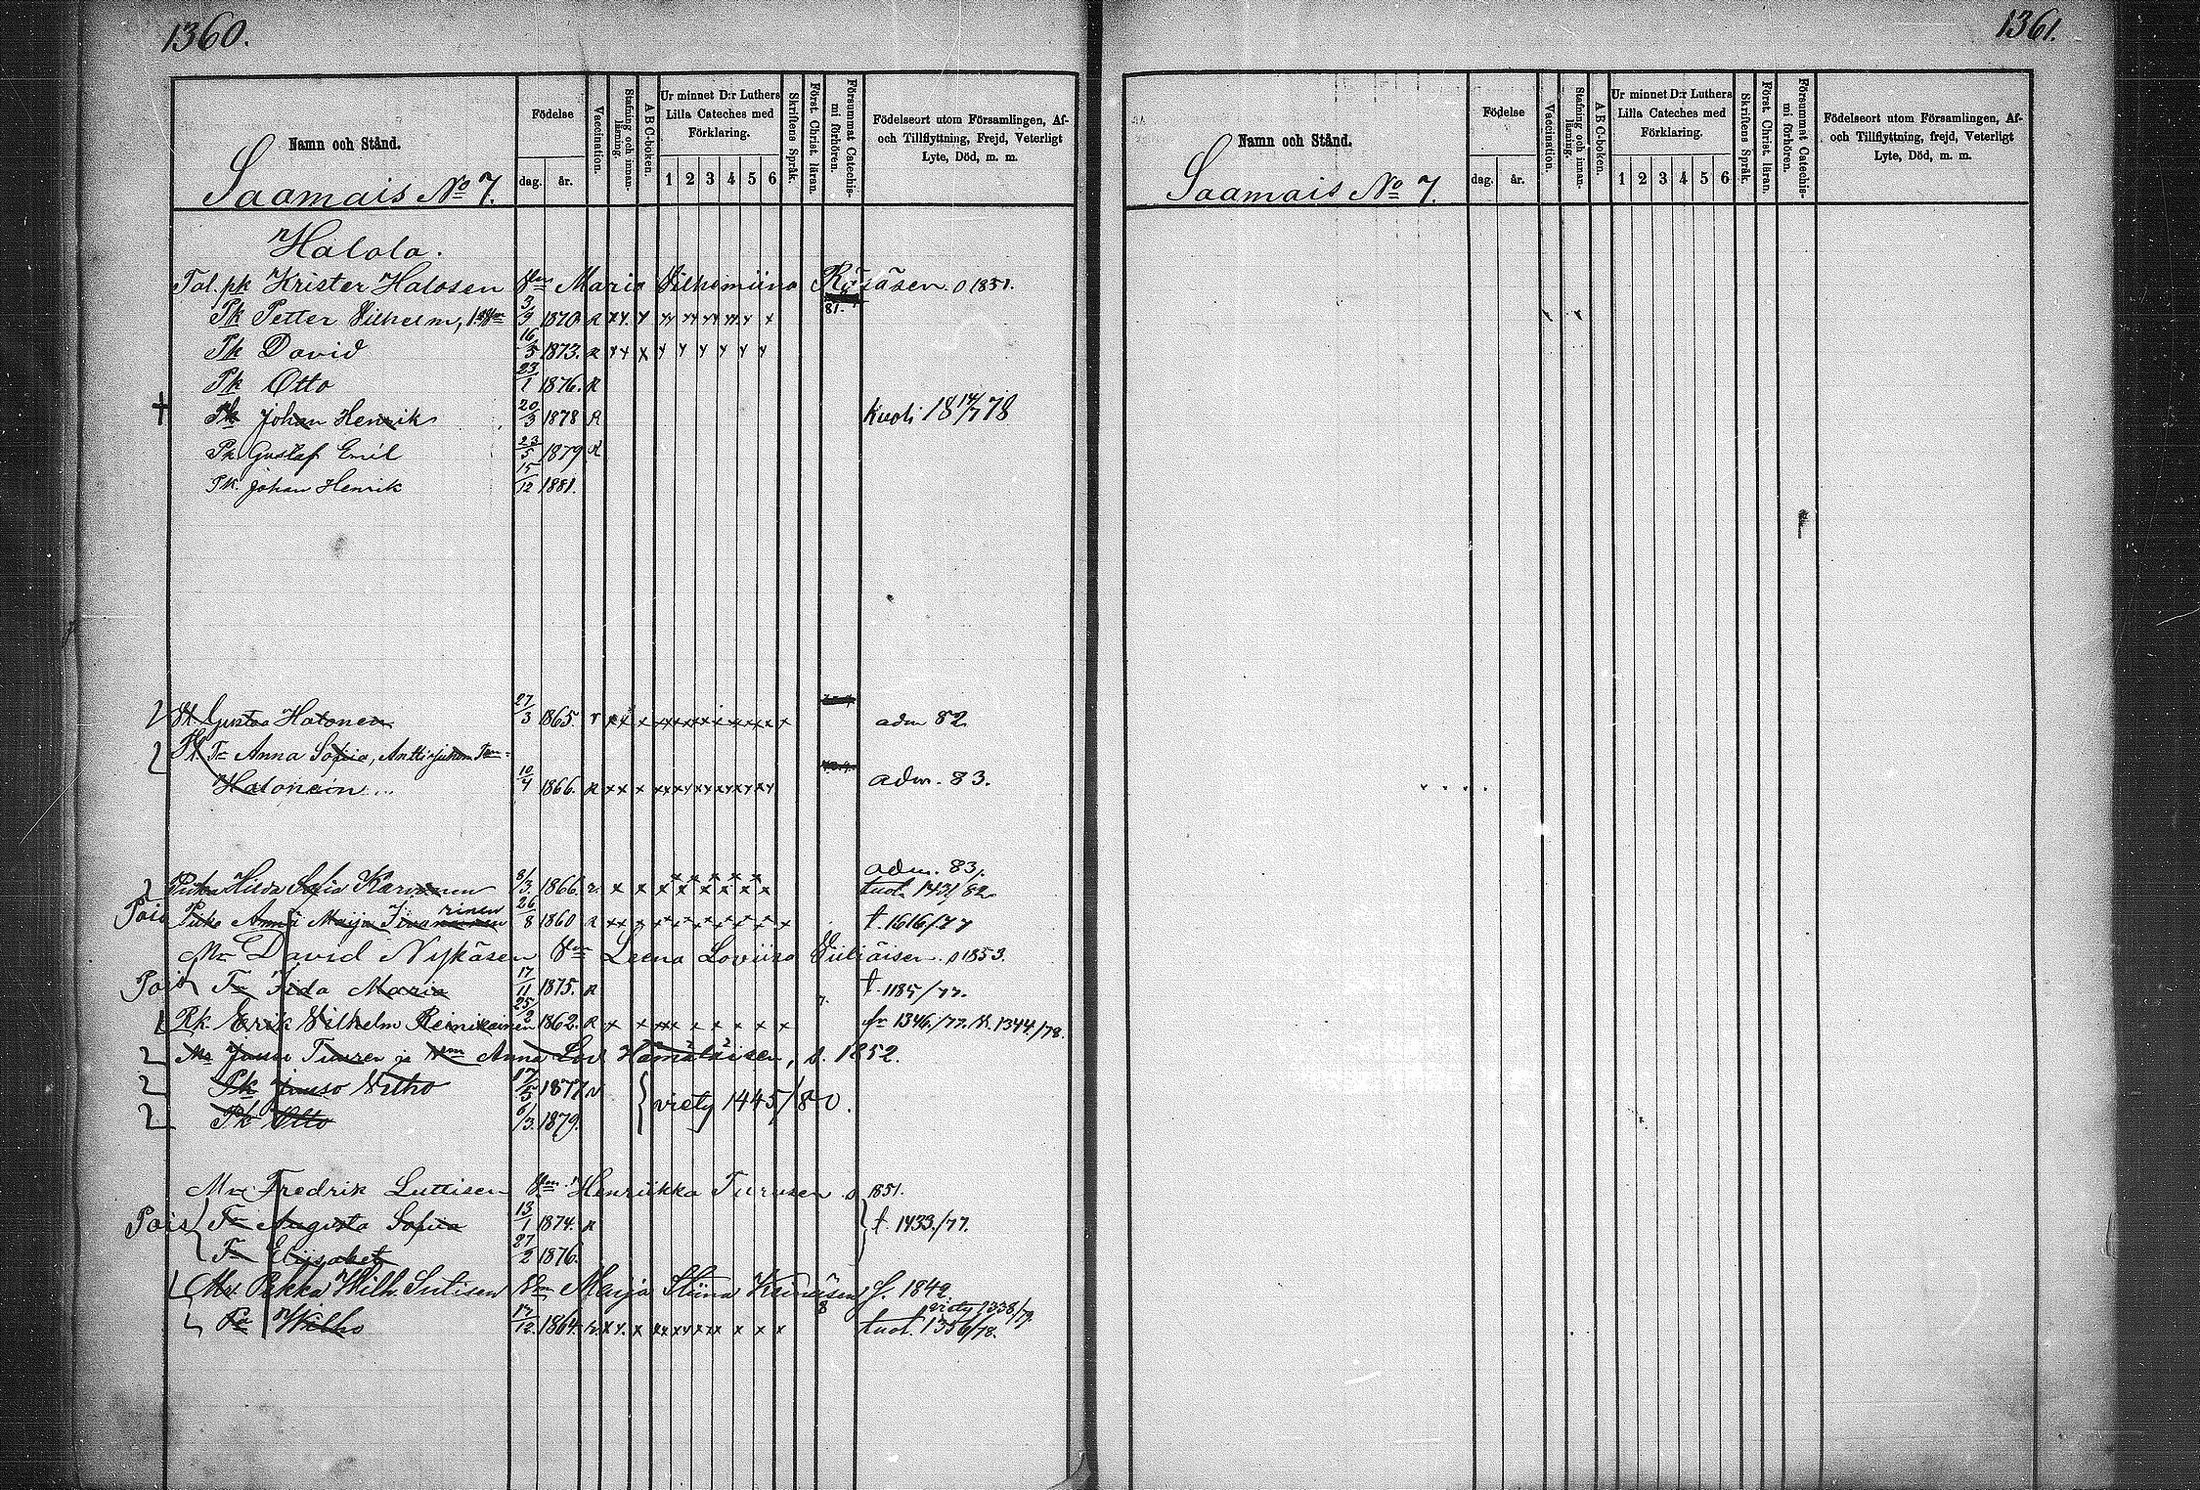 1360.
Namn och Stånd.
Födelse
dag.
år.
Vaccination.
Stafning och innan-läsning.
ABC-boken.
Ur minnet D:r Luthers
Lilla Cateches med
Förklaring.
1 2 3 4 5 6
Skriftens Språk.
Först. Christ. läran.
Försummat Catechis-mi förhören.
Födelseort utom Församlingen, Af-
och Tillflyttning, Frejd, Veterligt
Lyte, Död, m. m.
Saamais No 7.
Halola.
Tal. pk Krister Halosen Vmn Maria Vilhemiina Räsäsen s 1851.
Pk Petter Vilhelm, 3/9 1870 81.
Pk David 16/5 1873.
Pk Otto 23/1 1876.
Pk Johan Henrik 20/3 1878 Kuoli 18 14/7 78
Pk Gustaf Emil 23/5 1879
Pk. Johan Henrik 15/12 1881.
Gustaa Halonen 27/3 1865. adm 82
Pk. Tr Anna Sofia,
Halonein 10/4 1866. adm. 83.
adm. 83.
Piika Hilda Sofia Karvonen 8/3. 1866. tuot. 1431/82
Pois Piika Anna Maija rinen 26/8 1860 t. 1616/77
Mr David Nykäsen Vmn Leena Loviisa s 1853.
Pois Tr Iida Maria 17/11 1875. t. 1185/77.
Rk. Erik Vilhelm Reinikainen 25/2 1862. fr 1346./77. 1344./78.
Mr Juuse Turusen ja Vmn Anna Lov. Hämäläisen, s. 1852.
Pk Juuso Vilho 17/5 1877 viety 1445/80.
Pk Otto 6/3. 1879.
Mr Fredrik Luttisen Vmn Henriikka Turusen s 1851.
Pois Tr Augusta Sofiia 13/1 1874. t. 1433./77.
Tr Eliisabet 27/2 1876.
Mr. Pekka Wilh. Sutisen Vmn Maija Stiina f. 1842
viety 1338/79
Wilho 17/12. 1864. tuot. 1356/78.
1361.
Namn och Stånd.
Födelse
dag.
år.
Vaccination.
Stafning och innan-läsning.
ABC-boken.
Ur minnet D:r Luthers
Lilla Cateches med
Förklaring.
1 2 3 4 5 6
Skriftens Språk.
Först. Christ. läran.
Försummat Catechis-mi förhören.
Födelseort utom Församlingen, Af-
och Tillflyttning, frejd, Veterligt
Lyte, Död, m. m.
Saamais No 7.